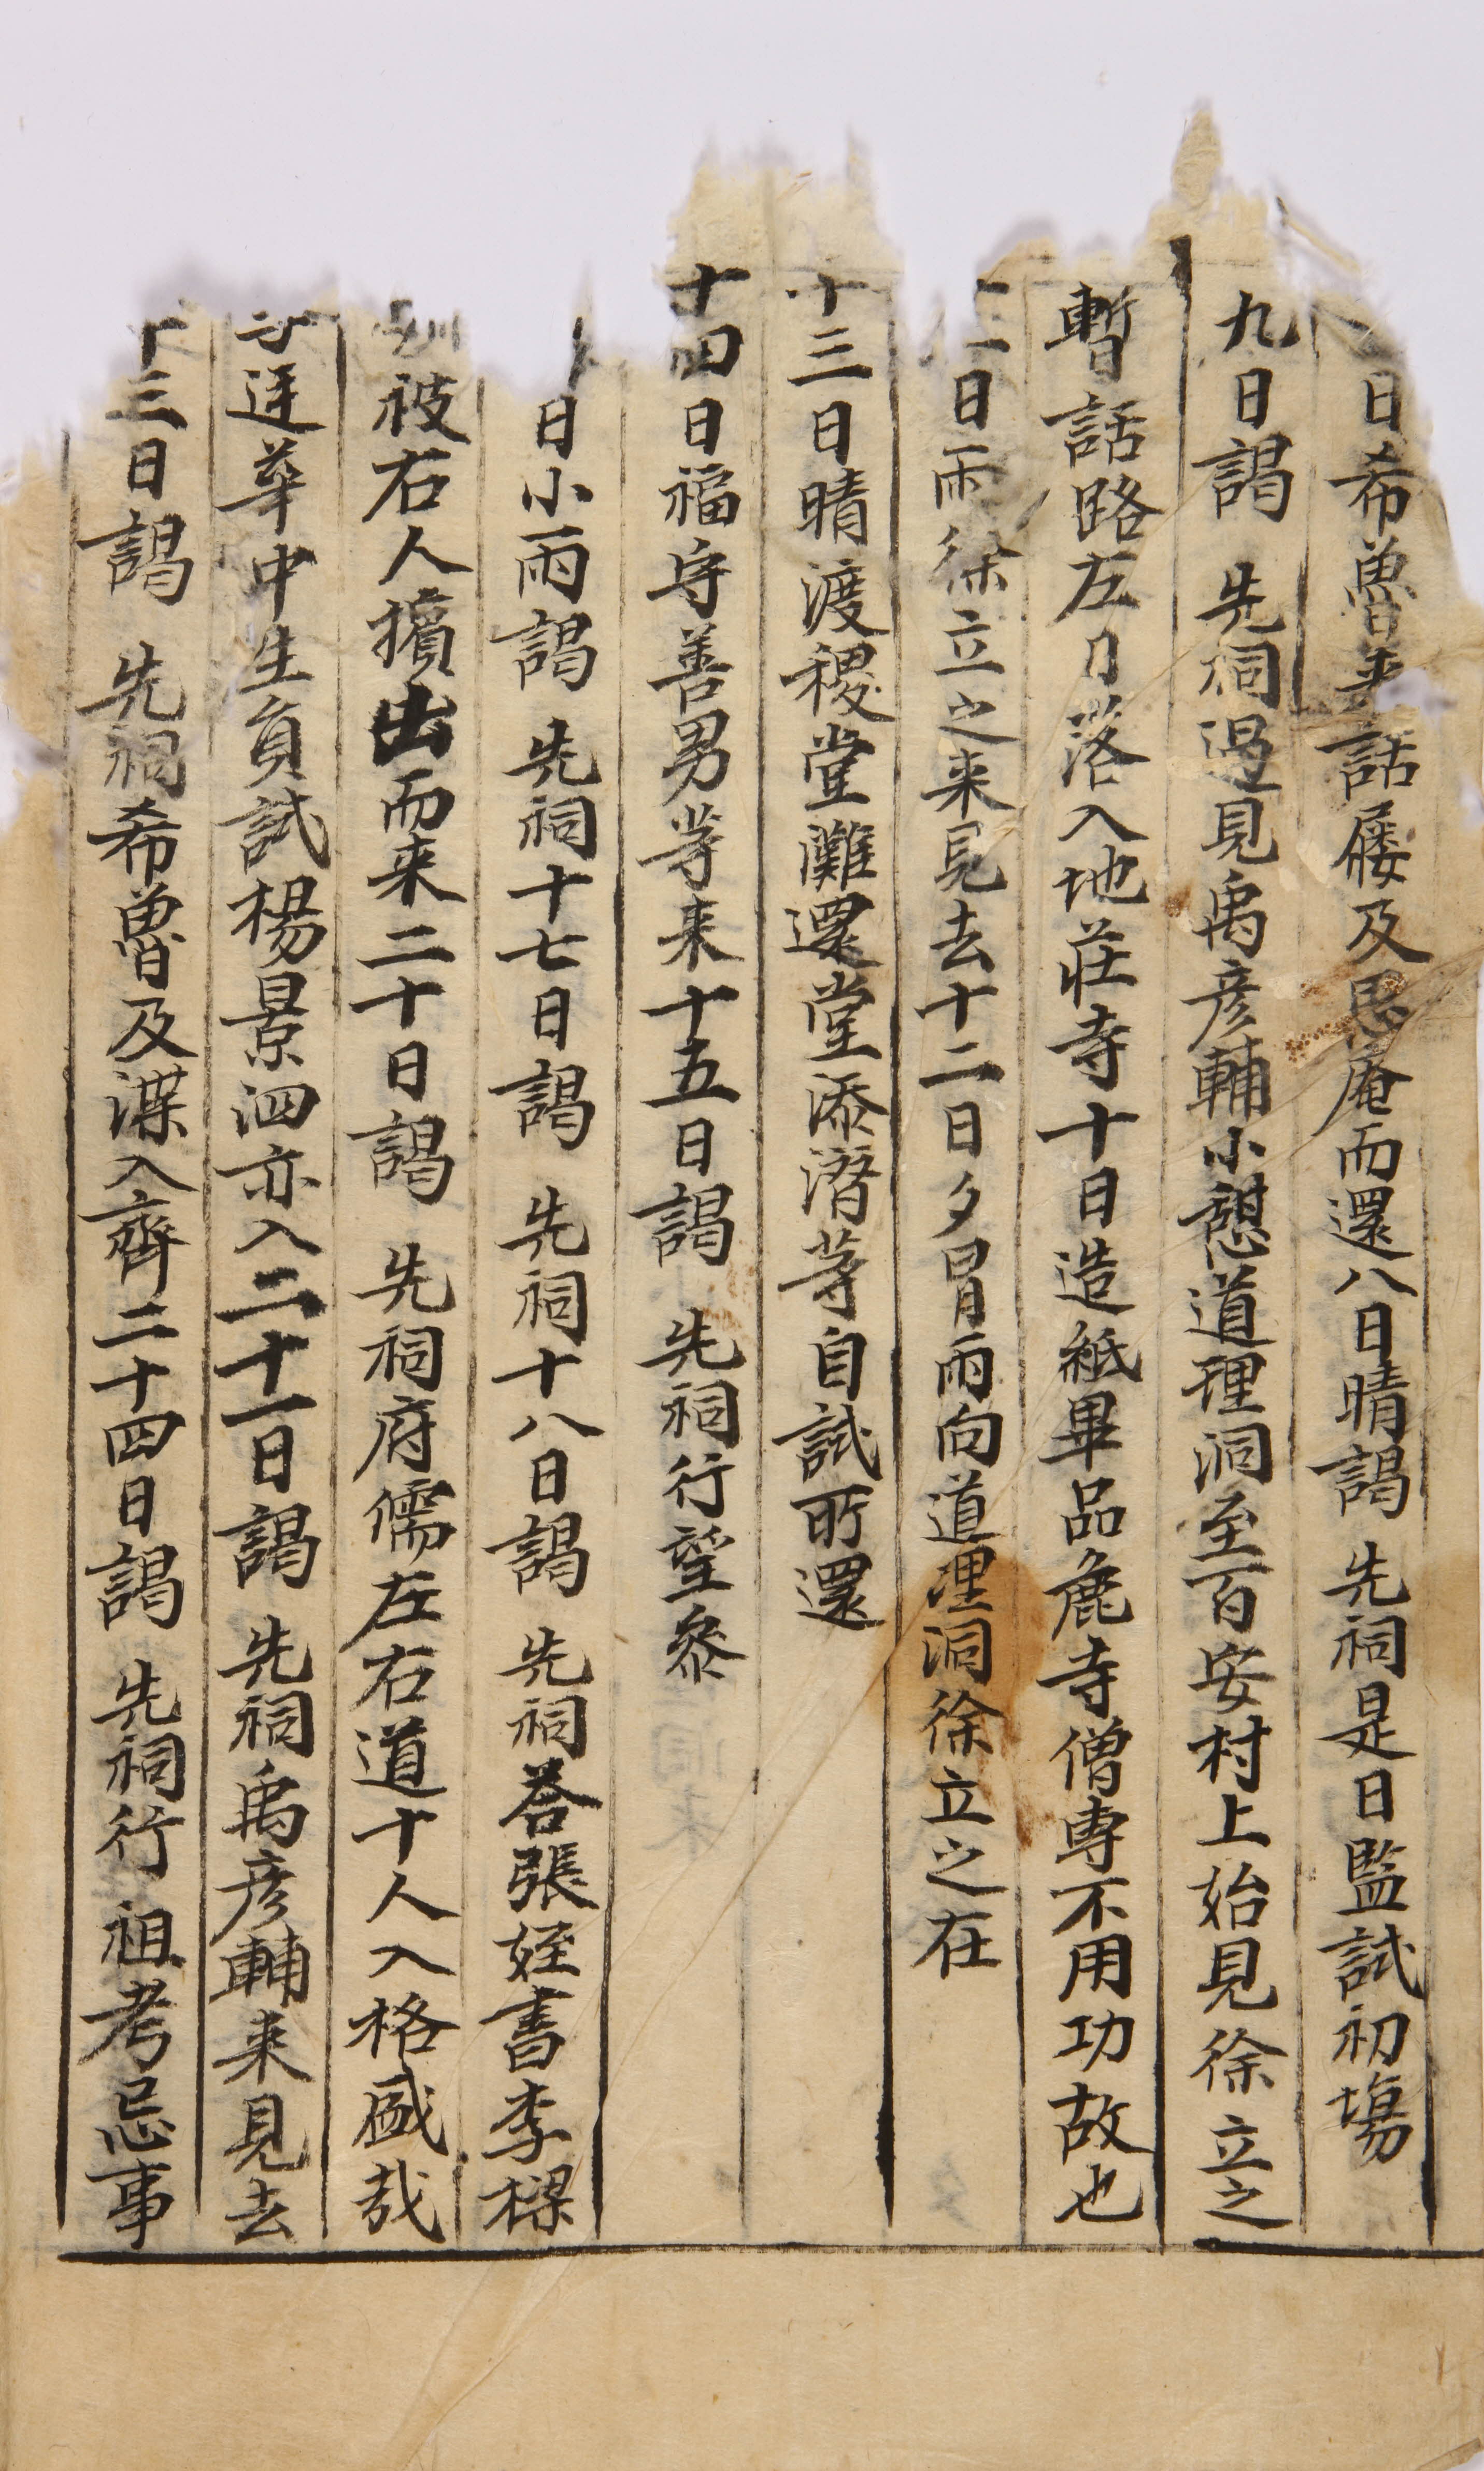 日希魯來話屐及思庵而還八日晴謁 先祠是日監試初場
九日謁 先祠過見禹彦輔小憇道理洞至百安村上始見徐立之
暫話路左日落入地莊寺十日造紙畢品麁寺僧專不用功故也
一日雨徐立之来見去十二日夕冒雨向道理洞徐立之在
十三日晴渡稷堂灘還堂添潛等自試所還
十四日福守善男等来十五日謁 先祠行望參
日小雨謁 先祠十七日謁 先祠十八日謁 先祠荅張姪書李樑
被右人擯出而来二十日謁 先祠府儒左右道十人入格盛哉
廷華中生員試楊景泗亦入二十一日謁 先祠禹彦輔来見去
十三日謁 先祠希魯及渫入齊二十四日謁 先祠行 祖考忌事